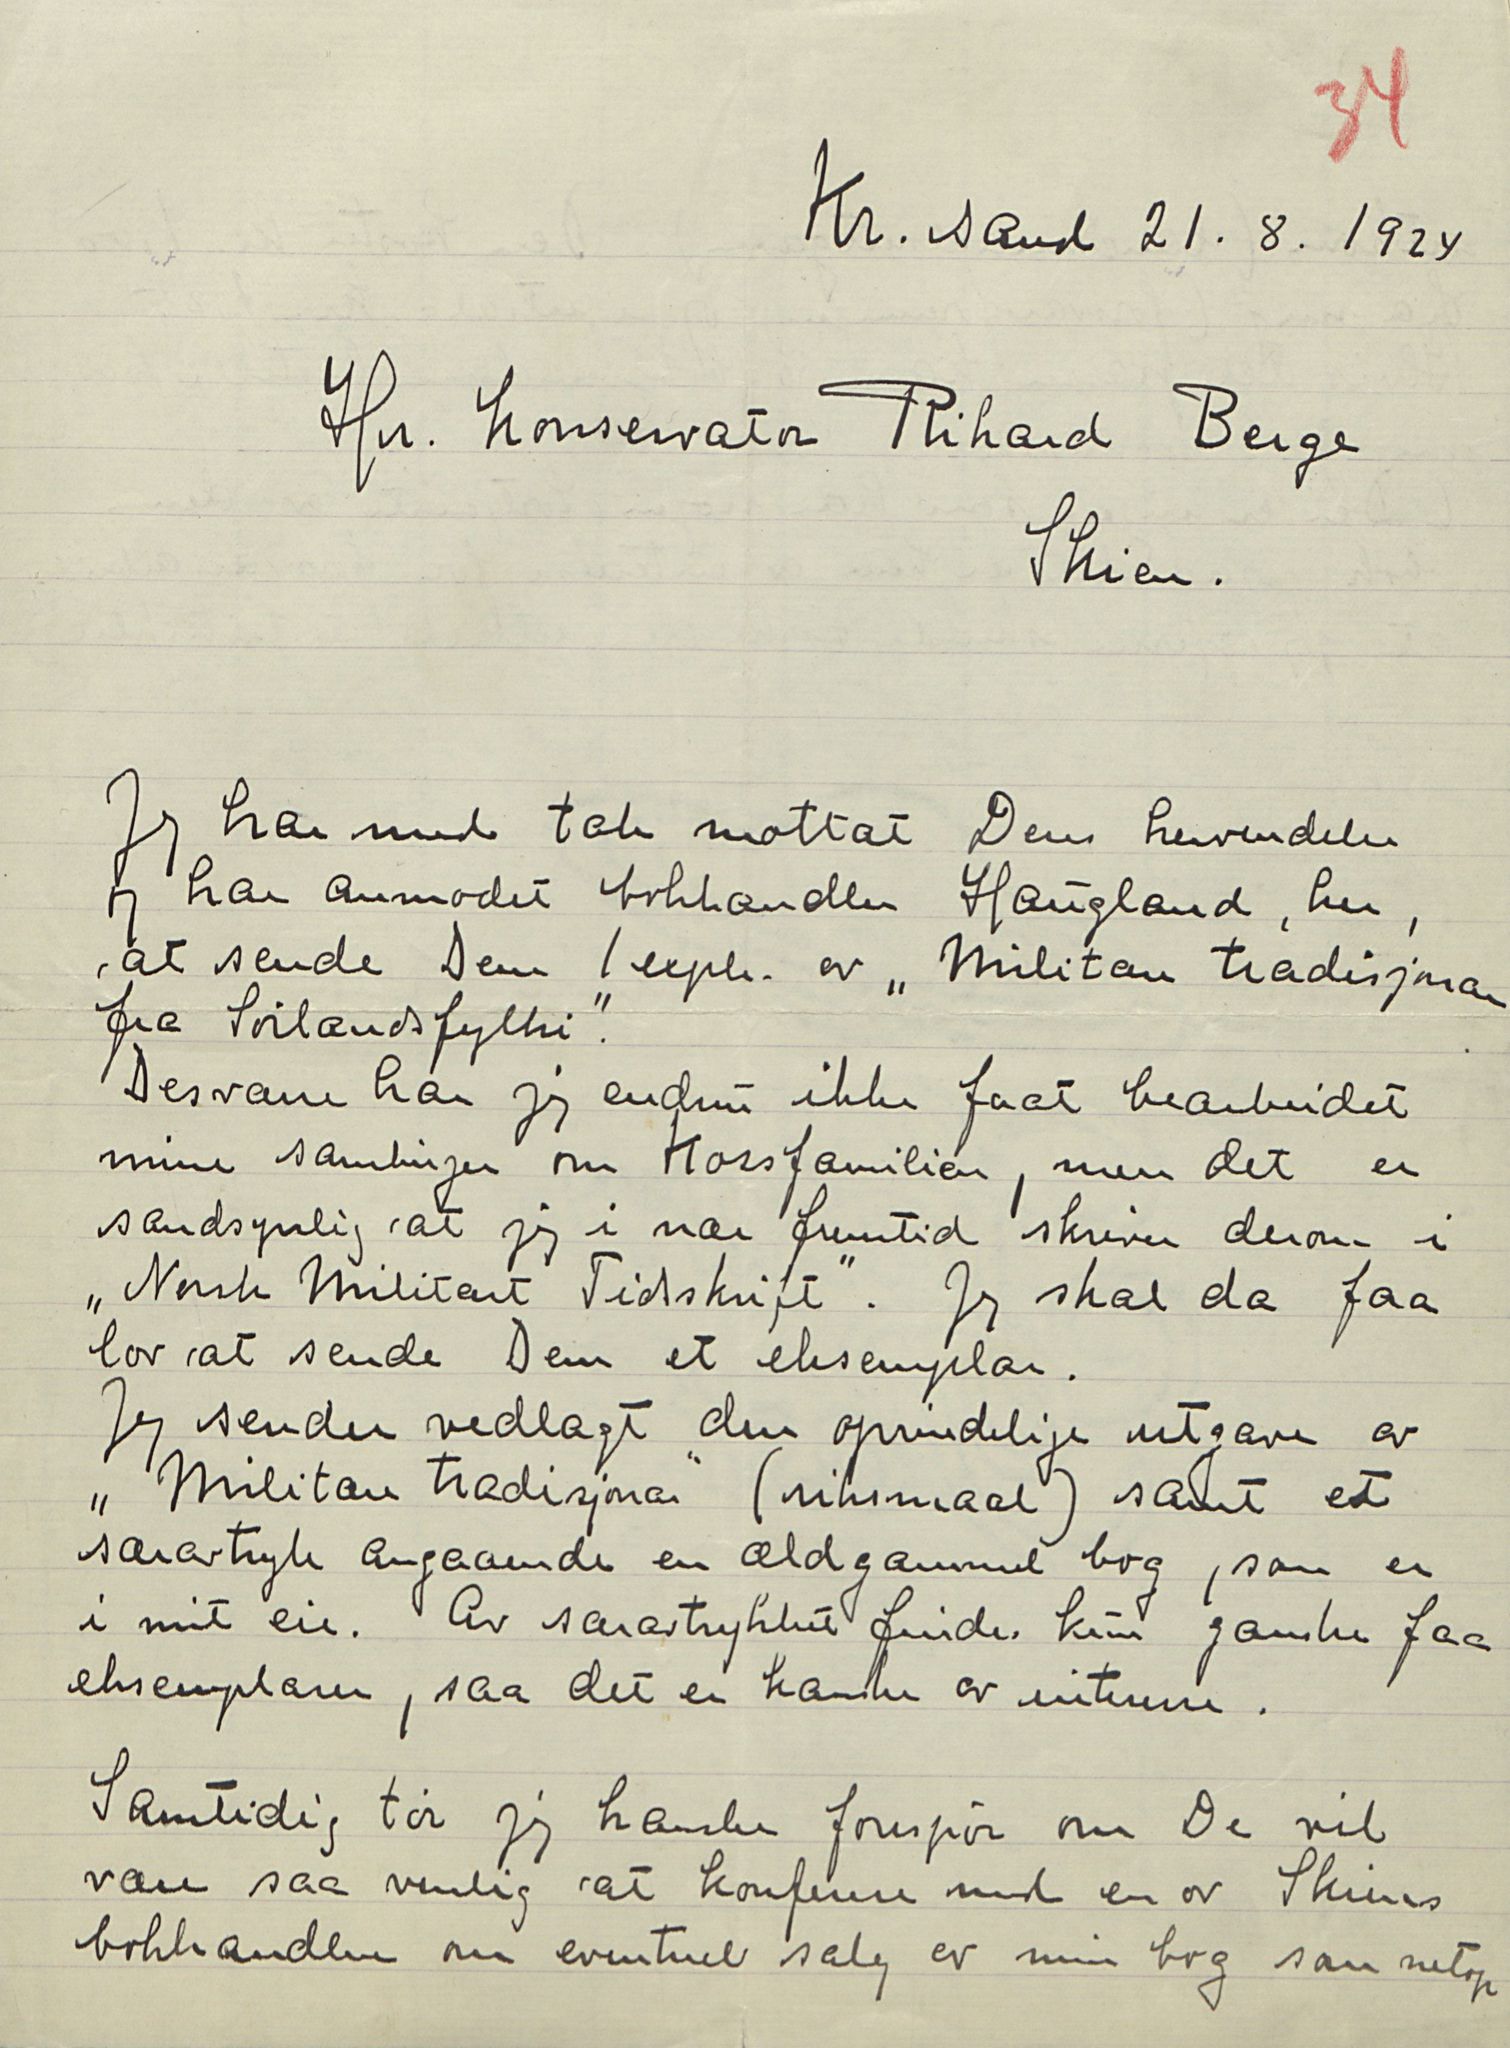 34
Kr. sand 21. 8. 1924
Hr. Konservator Rikard Berge
Skien.
Jeg har med tak mottat Deres henvendelse
og har anmodet bokhandler Haugland, her,
at sende Dem 1 expl. av „Militære tradisjonar
fra Sörlandsfylki".
Desværre har jeg endnu ikke faat bearbeidet
mine samlinger om Korsfamilien, men det er
sandsynlig at jeg i nær fremtid skriver derom i
„Norsk Militært Tidsskrift". Jeg skal da faa
lov at sende Dem et eksemplar.
Jeg sender vedlagt den oprindelige utgave av
„Militære tradisjonar" (riksmaal) samt et
særavtryk angaaende en ældgammel bog, som er
i mit eie. Av særavtrykket findes kun ganske faa
eksemplarer, saa det er kanske av interesse.
Samtidig tör jeg kanske forespör om De vil
være saa venlig at konferere med en av Skiens
bokhandlere om eventuel salg av min bog som netop